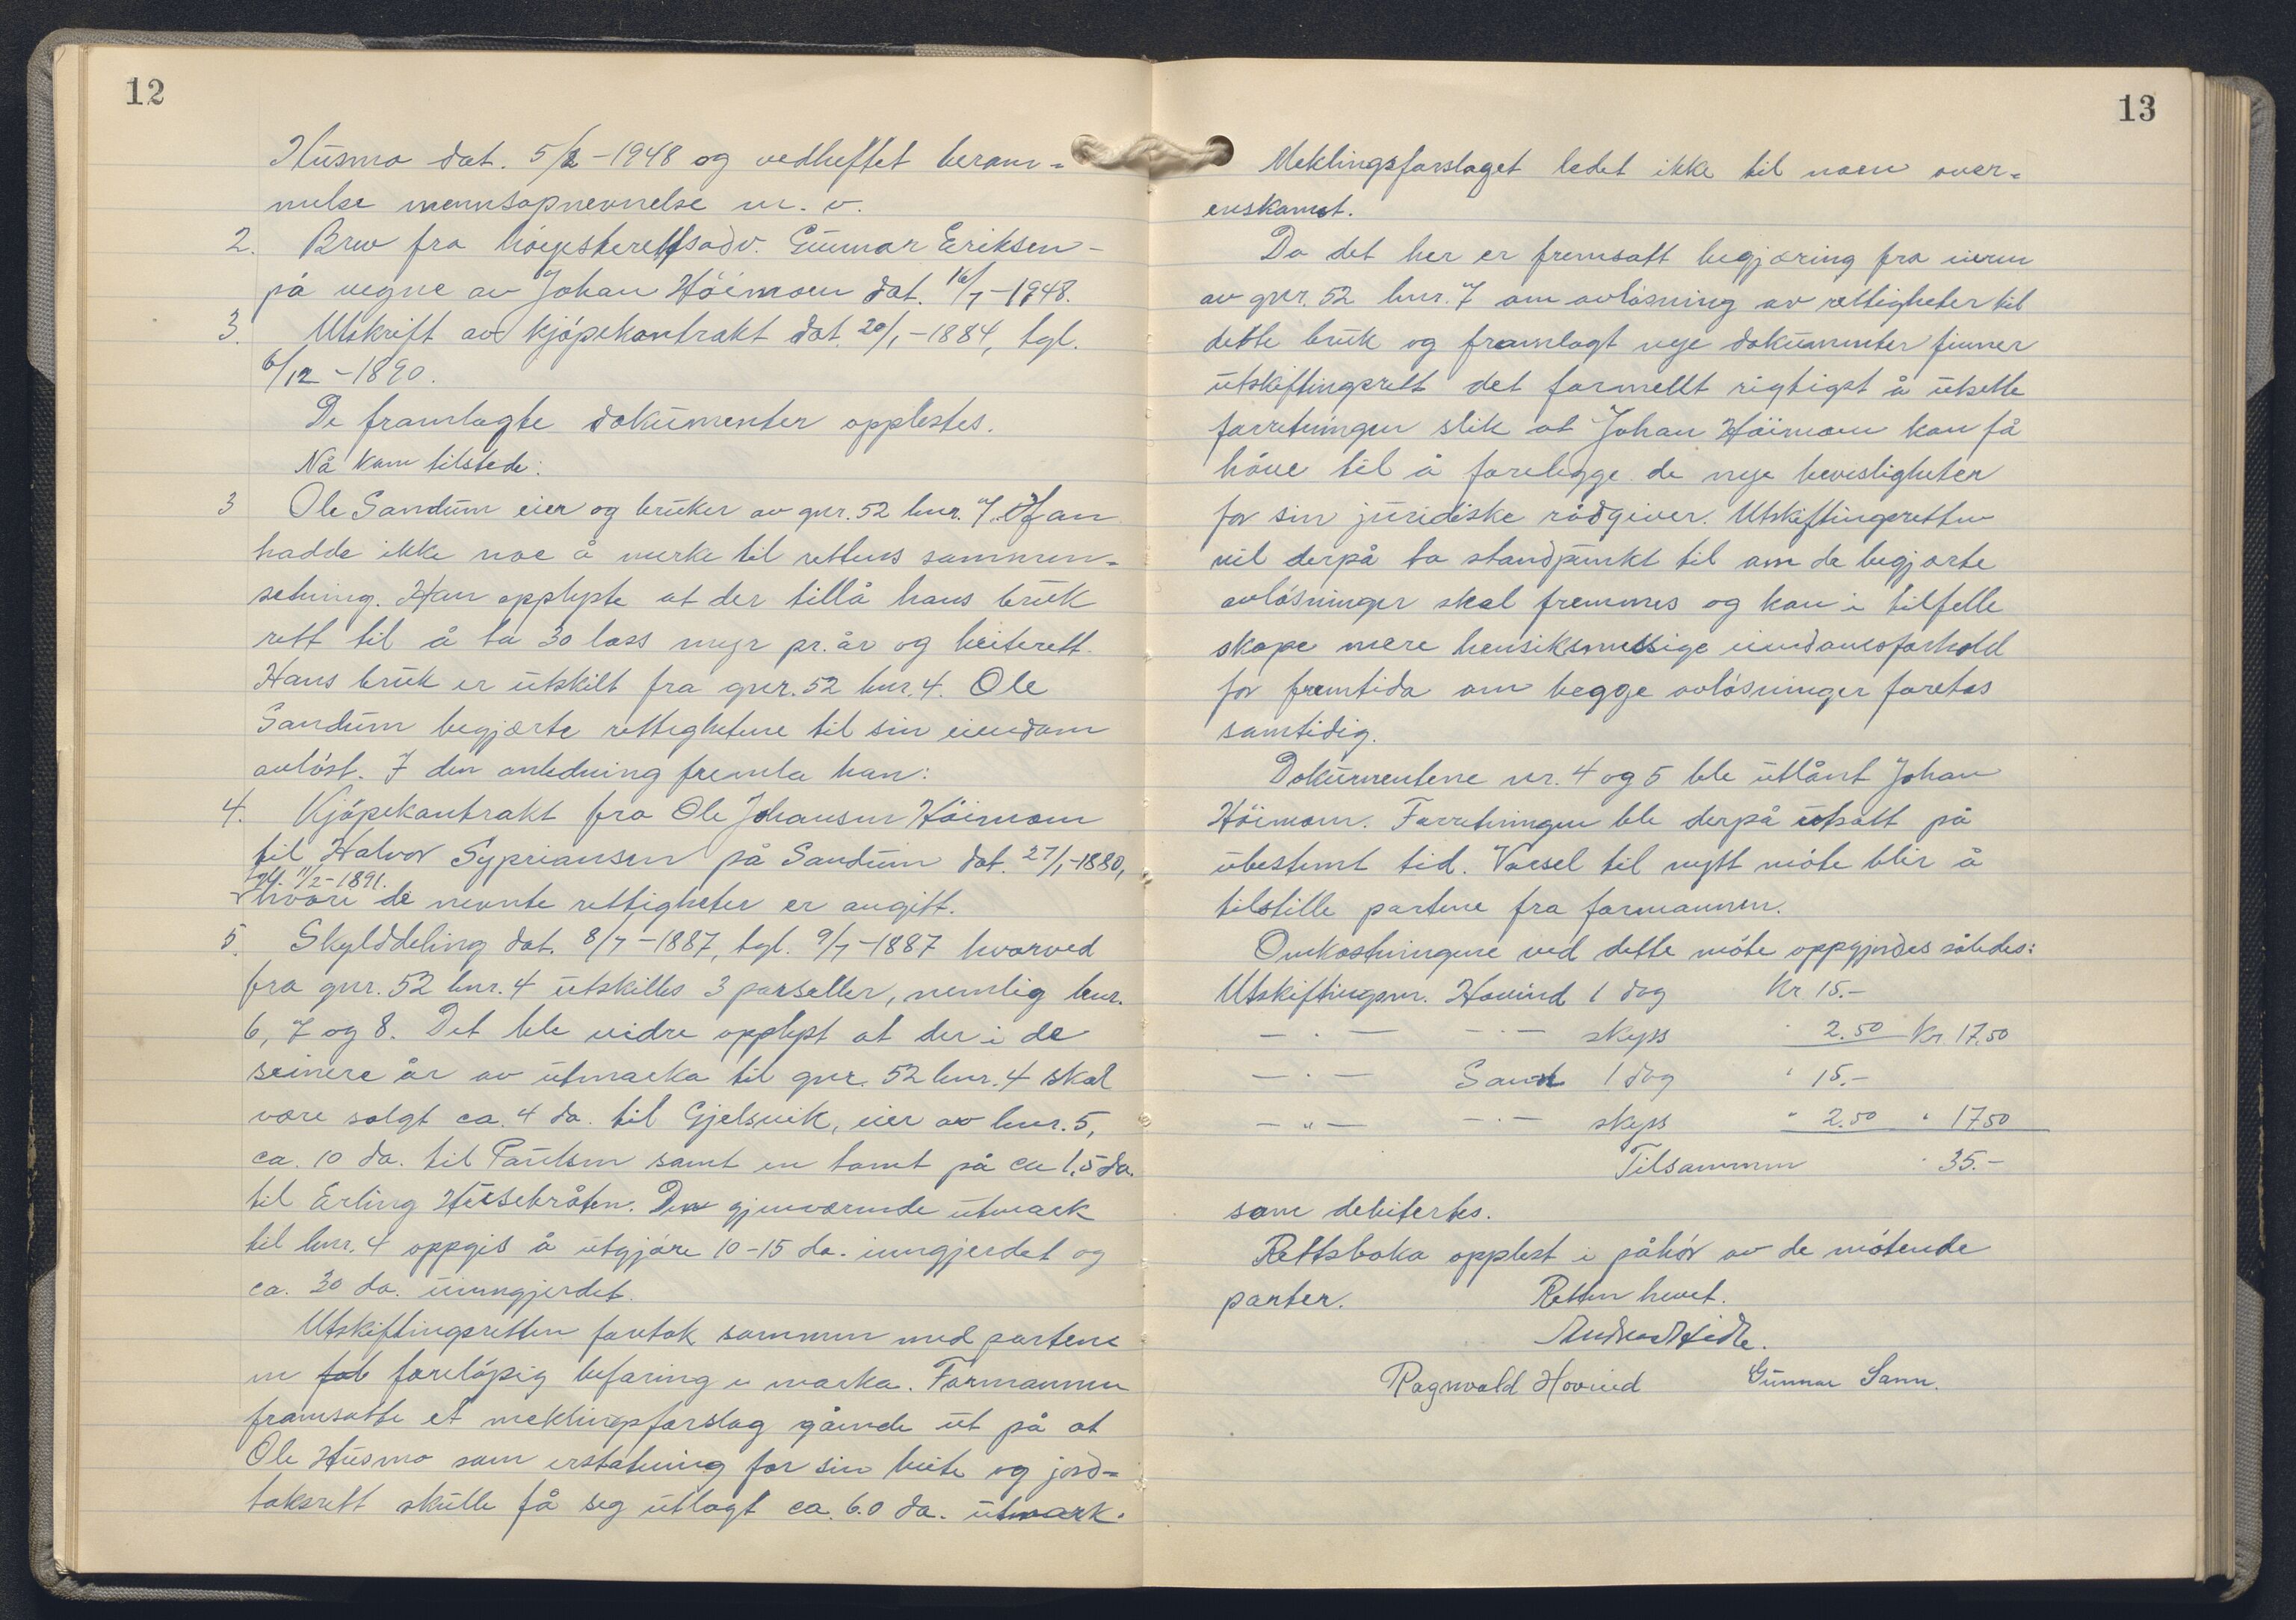 12
Husmo dat. 5/2-1948 og vedheftet beram-
melse mennsopnevnelse m. v.
2. Brev fra høyesterettsadv. Gunnar Eriksen
på vegne av Johan Höimoen dat. 16/7-1948.
3. Utskrift av kjøpekontrakt dat. 20/1-1884, tgl.
6/12-1890.
De framlagte dokumenter opplestes.
Nå kom tilstede:
3 Ole Sandum eier og bruker av gnr. 52 bnr. 7. Han
hadde ikke noe å merke til rettens sammen-
setning. Han opplyste at der tillå hans bruk
rett til å ta 30 lass myr pr. år og beiterett.
Hans bruk er utskilt fra gnr. 52 bnr. 4. Ole
Sandum begjærte rettighetene til sin eiendom
avløst. I den anledning fremla han:
4. Kjøpekontrakt fra Ole Johansen Höimoen
til Halvor Sypriansen på Sandum dat. 27/1-1880,
tgl. 11/2-1891.
hvori de nevnte rettigheter er angitt.
5. Skylddeling dat. 8/7-1887, tgl. 9/7-1887 hvorved
fra gnr. 52 bnr. 4 utskilles 3 parseller, nemlig bnr.
6, 7 og 8. Det ble vidre opplyst at der i de
seinere år av utmarka til gnr. 52 bnr. 4 skal
være solgt ca. 4 da. til Gjelsvik, eier av bnr. 5,
ca. 10 da. til Paulsen samt en tomt på ca 1,5 da.
til Erling Husebråten. Den gjenværende utmark
til bnr. 4 oppgis å utgjøre 10-15 da. inngjerdet og
ca. 30 da. uinngjerdet.
Utskiftingsretten foretok sammen med partene
en foreløpig befaring i marka. Formannen
framsatte et meklingsforslag gående ut på at
Ole Husmo som erstatning for sin beite og jord-
taksrett skulle få seg utlagt ca. 6.0 da. utmark.
13
Meklingsforslaget ledet ikke til noen over-
enskomst.
Da det her er fremsatt begjæring fra eieren
av gnr. 52 bnr. 7 om avløsning av rettigheter til
dette bruk og framlagt nye dokumenter finner
utskiftingsrett det formellt riktigst å utsette
forretningen slik at Johan Höimoen kan få
høve til å forelegge de nye bevisligheter
for sin juridiske rådgiver. Utskiftingsretten
vil derpå ta standpunkt til om de begjærte
avløsninger skal fremmes og kan i tilfelle
skape mere hensiktsmessige eiendomsforhold
for fremtida om begge avløsninger foretas
samtidig.
Dokumentene nr. 4 og 5 ble utlånt Johan
Höimoen. Forretningen ble derpå utsatt på
ubestemt tid. Varsel til nytt møte blir å
tilstille partene fra formannen.
Omkostningene ved dette møte oppgjordes således:
Utskiftingsm. Hovind 1 dag Kr. 15.-
- . - - . - skyss 2.50 Kr. 17.50
- . - Sann 1 dag " 15.-
- " - - . - skyss " 2.50 " 17.50
Tilsammen 35.-
som debitertes.
Rettsboka opplest i påhør av de møtende
parter. Retten hevet.
Ragnvald Hovind Gunnar Sann.